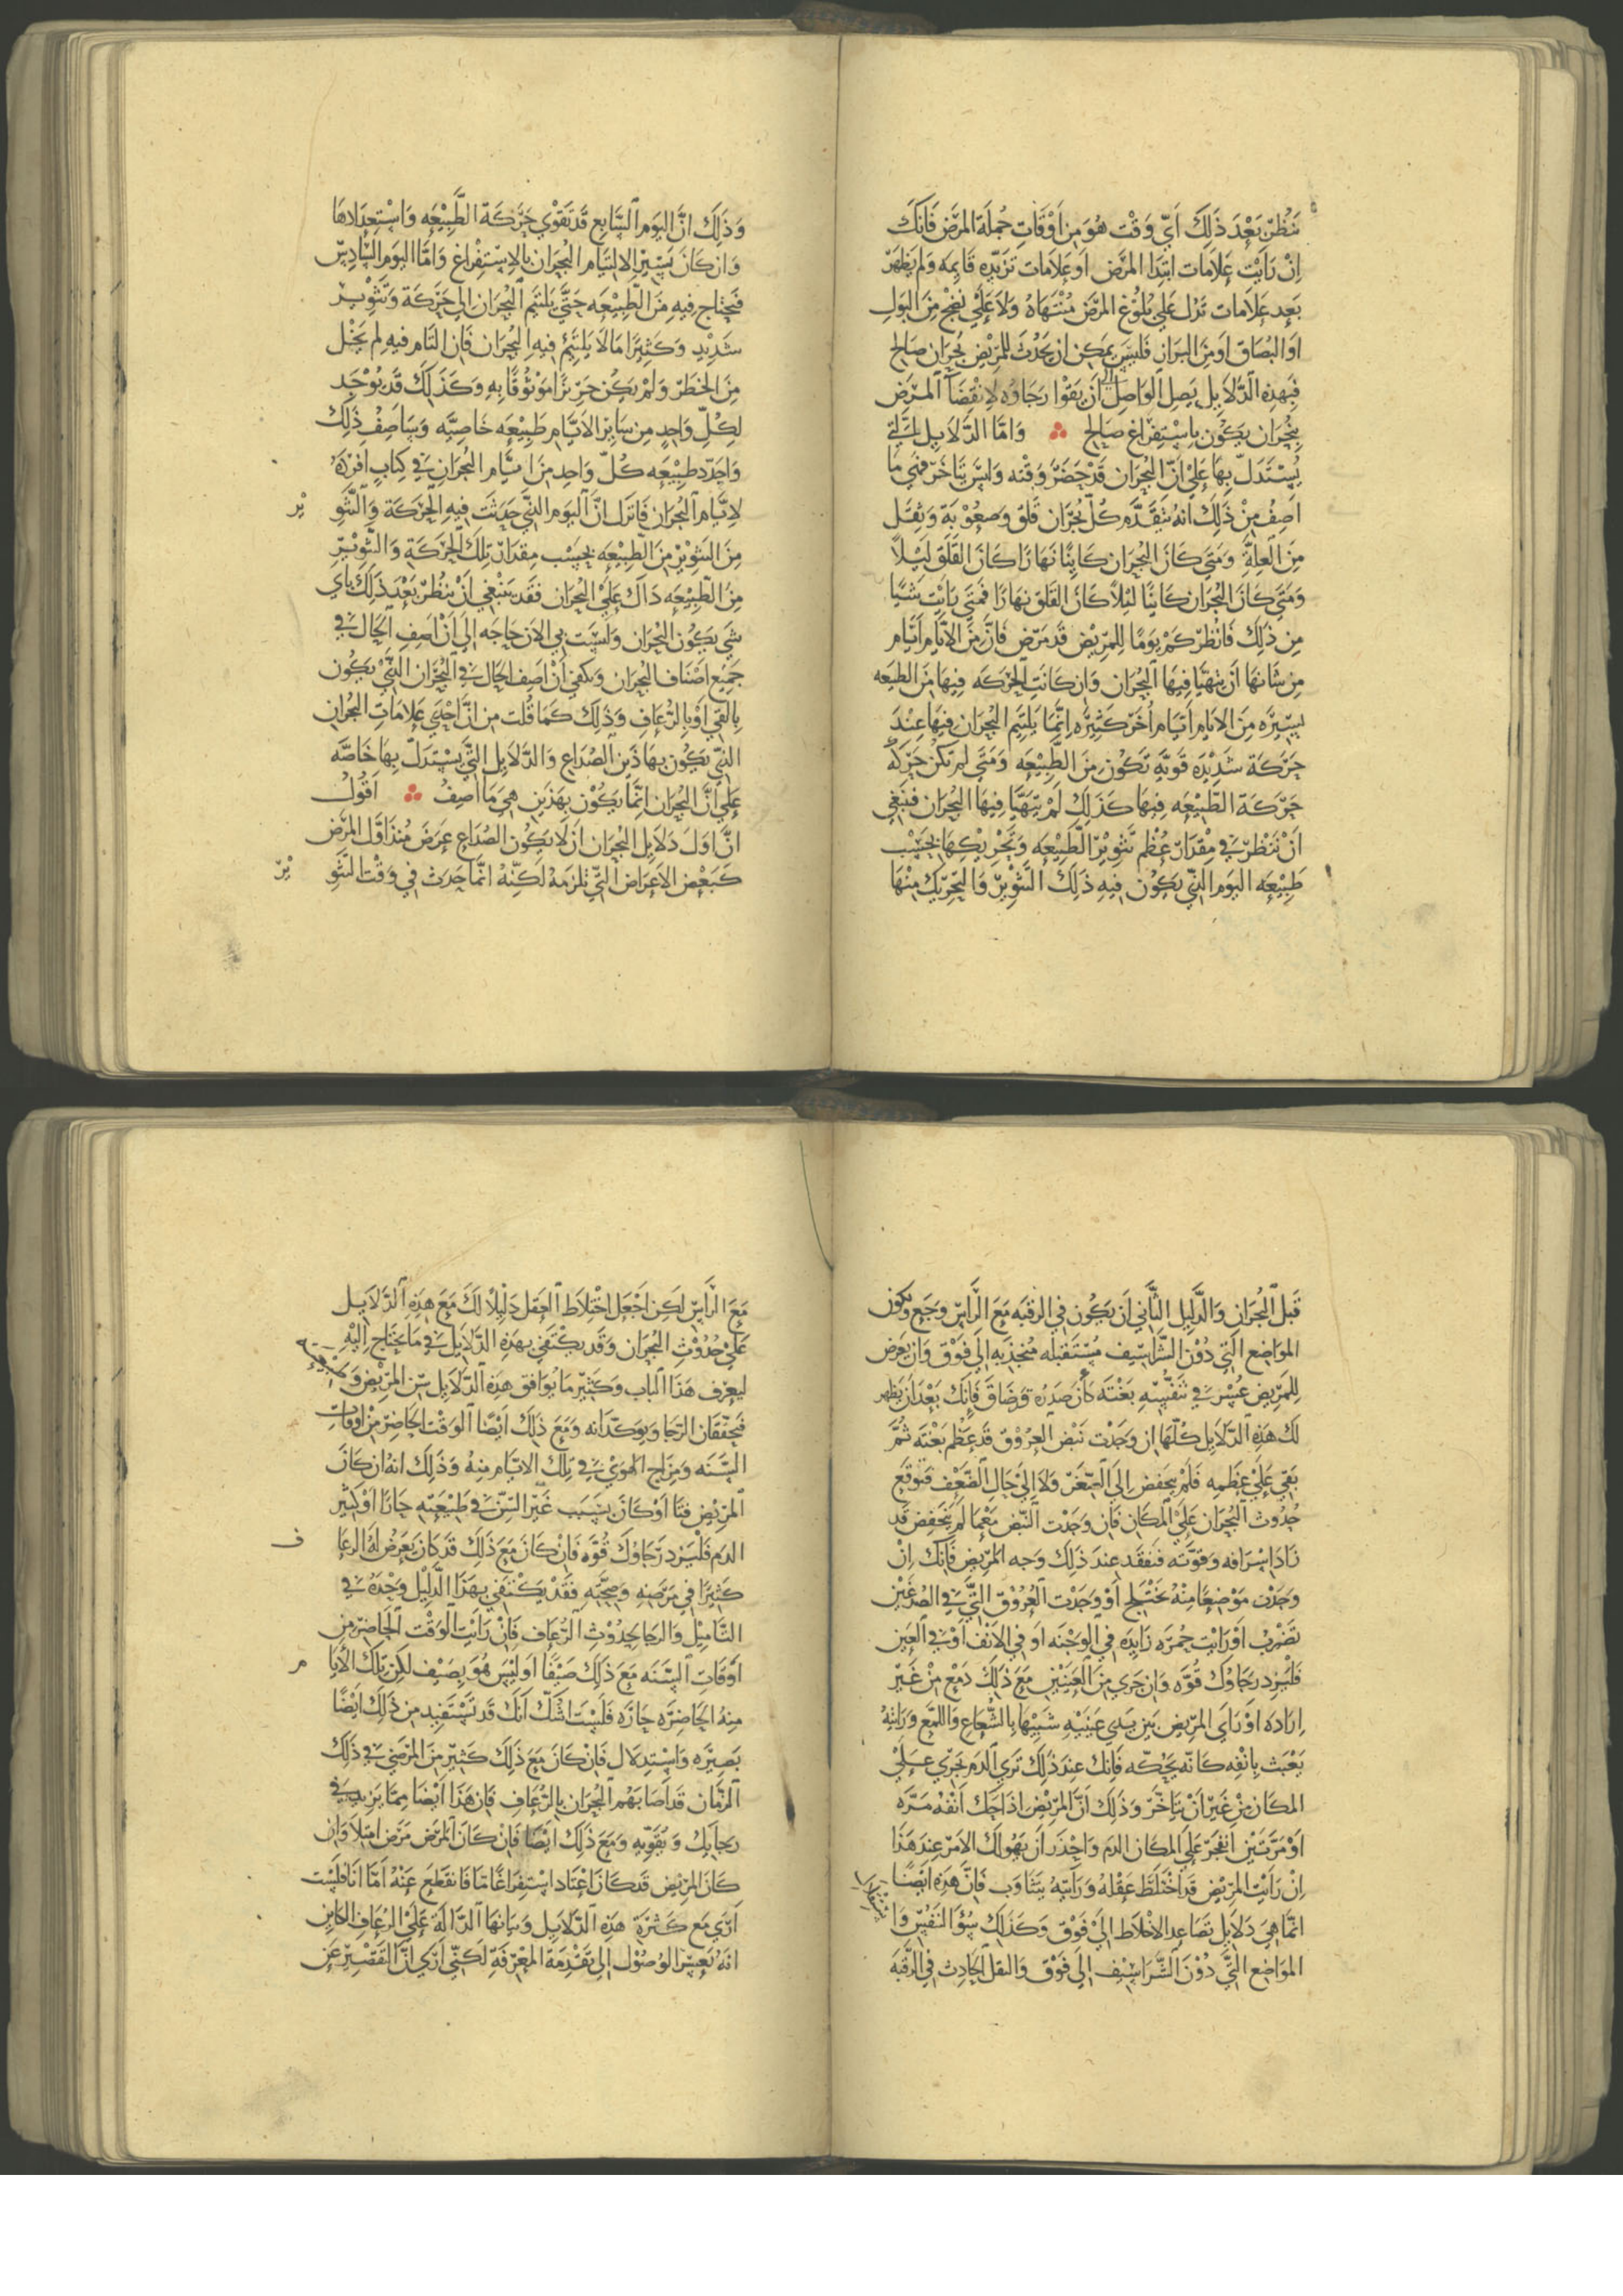 تنظر بعد ذلك أي وقت هو من أوقات جملة المرض فانك
إن رأيت علامات ابتدا المرض او علامات تزيده قايمة ولم يظهر
بعد علامات تدل علي بلوغ المرض منتهاه ولا علي نضج من البول
او البصاق او من البراز فليس يمكن ان يحدث للمريض بحران صالح
فبهذه الدلايل يصل الواصل الى أن يقوا رجاوه لانقضا المرض
ببحران يكون باستفراغ صالح وامّا الدلايل التي
يستدل بها علي انّ البحران قد حضر وقته وليس يتاخر فهي ما
اصف من ذلك انه يتقدم كل بحران قلق وصعوبة وثقل
من العلة ومتي كان البحران كاينا نهارا كان القلق ليلاً
ومتي كان البحران كاينا ليلاً كان القلق نهارا فمتي رايت شيا
من ذلك فانظر كم يوما للمريض قد مرض فانّ من الايام أيام
من شانها أن يتهيّا فيها البحران وان كانت الحركه فيها من الطبيعه
يسيره من الايام أيام أخر كثيره إنما يلتيم البحران فيها عند
حركة شديده قوية تكون من الطبيعه ومتي لم تكن حركه
حركة الطبيعه فيها كذلك لم يتهيّا فيها البحران فينبغي
ان تنظر في مقدار عظم تثوير الطبيعه وتحريكها بحسب
طبيعه اليوم الذي يكون فيه ذلك التثوير والتحريك منها
وذلك انّ اليوم السابع قد تقوي حركة الطبيعه واستعدادها
وان كان يسير الالتيام البحران بالاستفراغ وامّا اليوم السادس
فيحتاج فيه من الطبيعه حتّي يلتيم البحران الي حركة وتثوير
شديد وكثيرا ما لا يلتيم فيه البحران فان التام فيه لم يخل
من الخطر ولم يكن حريزا موثوقا به وكذلك قد يوجد
لكل واحد من ساير الايام طبيعه خاصيه وساصف ذلك
واحدد طبيعه كل واحد من ايام البحران في كتاب افرده
لايام البحران فانزل انّ اليوم الذي حدثت فيه الحركة والتثوير
من التثوير من الطبيعه بحسب مقدار تلك الحركة والتثوير
من الطبيعه دالك علي البحران فقد ينبغي أن تنظر بعد ذلك باي
شي يكون البحران وليست بي الان حاجه إلي أن اصف الحال في
جميع اصناف البحران ويكفي أن أصف الحال في البحران الذي يكون
بالقي او بالرعاف وذلك كما قلت من انّ احدي علامات البحران
الذي يكون بهاذين الصداع والدلايل التي يستدل بها خاصه
علي انّ البحران انما يكون بهذين هي ما اصف اقول
انّ اول دلايل البحران أن لا يكون الصداع عرض منذ اول المرض
كبعض الاعراض التي تلزمه لكنّه انما حدث في وقت التثوير
قبل البحران والدليل الثاني أن يكون في الرقبه مع الراس وجع وتكون
المواضع التي دون الشراسيف مستقبله منجذبه إلي فوق وان يعرض
للمريض عسر في تنفسه بغتة كأن صدره قد ضاق فإنك بعد ان يظهر
لك هذه الدلايل كلها ان وجدت نبض العروق قد عظم بغته ثم
بقي علي عظمه فلم ينخفض إلي الصغر ولا إلي حال الضعف فتوقع
حدوث البحران علي المكان فان وجدت النبض مع ما لم ينخفض قد
زاد اسرافه وقوته فتفقد عند ذلك وجه المريض فانك ان
وجدت موضعا منه يختلج أو وجدت العروق التي في الصدغين
تضرب او رايت حمره زايده في الوجنه او في الانف أو في العين
فليزد رجاوك قوه وان جري من العينين مع ذلك دمع من غير
ارادة او راي المريض بين يدي عينيه شبيها بالشعاع واللمع ورايته
يعبث بانفه كانه يحكه فانك عند ذلك تري الدم يجري علي
المكان من غير أن يتاخر وذلك انّ المريض اذا حك أنفه مره
أو مرتين انفجر علي المكان الدم واحذر أن يهولك الامر عند هذا
ان رايت المريض قد اختلط عقله ورايته يتثاوب فإن هذه ايضًا
انما هي دلايل تصاعد الاخلاط الي فوق وكذلك سو النفس وا
المواضع التي دون الشراسيف الي فوق والثقل الحادث في الرقبة
مع الراس لكن اجعل اختلاط العقل دليلا لك مع هذه الدلايل
علي حدوث البحران وقد يكتفي بهذه الدلايل في ما يحتاج اليه
ليعرف هذا الباب وكثير ما يوافق هذه الدلايل سن المريض و
فيحققان الرجا ويوكدانه ومع ذلك ايضا الوقت الحاضر من اوقات
السنه ومزاج الهوي في تلك الايام منه وذلك انه ان كان
المريض فتا أو كان بسبب غير السن في طبيعته حارا أو كثير
الدم فليزد رجاوك قوه فان كان مع ذلك قد كان يعرض له الرعاف
كثيرا في مرضه وصحته فقد يكتفي بهذا الدليل وحده في
التاميل والرجا بحدوث الرعاف فان رايت الوقت الحاضر من
أوقات السنه مع ذلك صيفا او ليس هو بصيف لكن تلك الأيام
منه الحاضره حاره فلست اشك انك قد تستفيد من ذلك ايضًا
بصيره واستدلال فان كان مع ذلك كثير من المرضي في ذلك
الزمان قد أصابهم البحران بالرعاف فان هذا أيضا مما يزيد في
رجايك ويقويه ومع ذلك ايضا فان كان المرض مرض امتلا وان
كان المريض قد كان اعتاد استفراغا ما فانقطع عنه أمّا انا فلست
أري مع كثرة هذه الدلايل وبيانها الدالة علي الرعاف الكاين
انه يعسر الوصول إلي تقدمة المعرفة لكني أري انّ التقصير عن